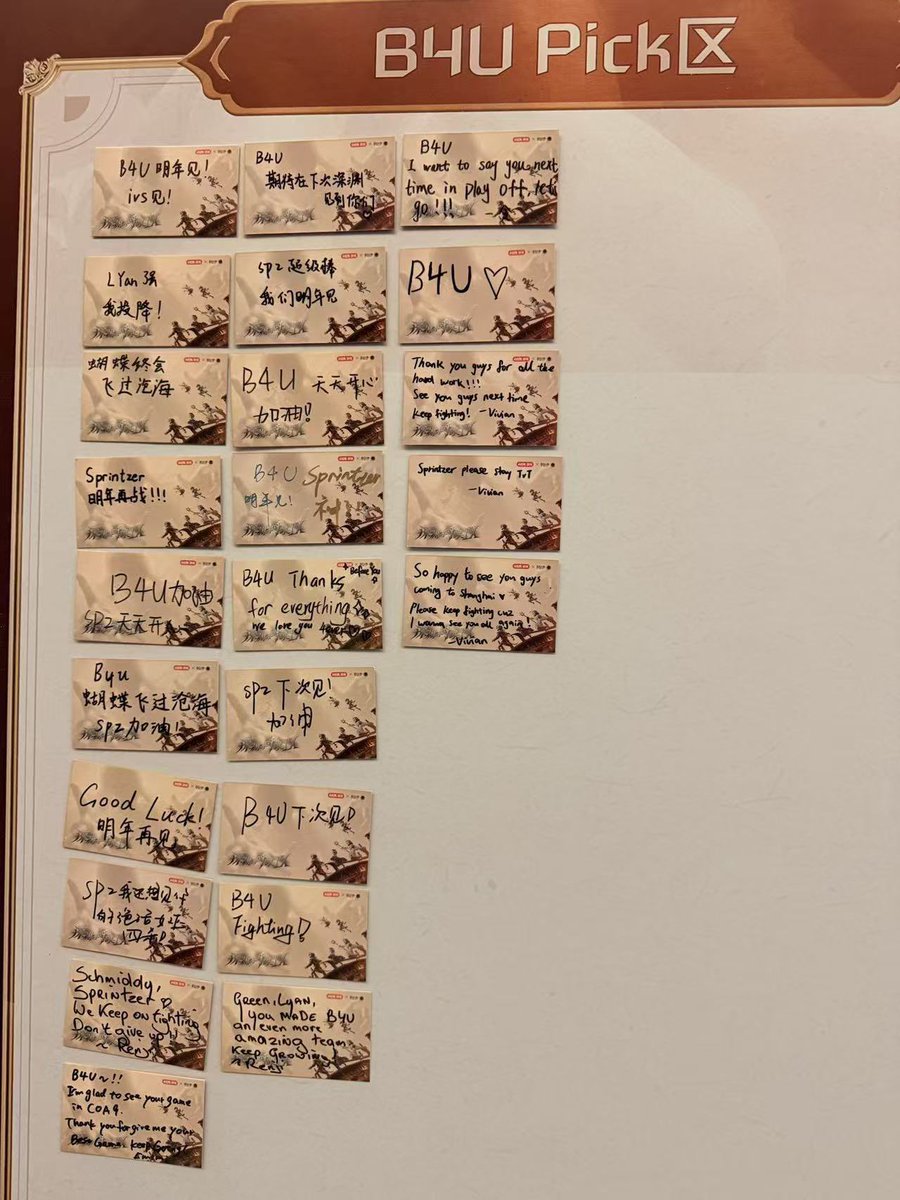 B4U Pick区
B4U 明年见!
ivs见!
B4U
期待在下次深渊
见到你们
B4U
I want to say you next
time in play off, let's
go!!!
LYan 强
我投降!
SP2 超级棒
我们明年见
B4U ♡
蝴蝶终会
飞过沧海
B4U 天天开心
加油!
Thank you guys for all the
hard work!!!
See you guys next time
keep fighting! -Vivian
Sprintzer
明年再战!!!
B4U Sprintzer
明年见! 神!!
Sprintzer please stay TvT
-Vivian
B4U加油
SP2天天开心
B4U Thanks
Before You
for everything
we love you 4ever
So happy to see you guys
coming to Shanghai ♥
Please keep fighting cuz
I wanna see you all again!
-Vivian
B4U
蝴蝶飞过沧海
SP2加油!
SP2下次见!
加油
Good Luck!
明年再见
B4U下次见!
SP2我还想见你
的绝活女巫
B4U
Fighting!
Schmiddy,
Sprintzer ♡
We Keep on fighting
Don't give up!!
~ Renji
Green, Lyan,
you MADE B4U
an even more
amazing team
Keep Growing!
~ Renji
B4U~!!
I'm glad to see your game
in COA9.
Thank you for give me your
Best Game. Keep Going!